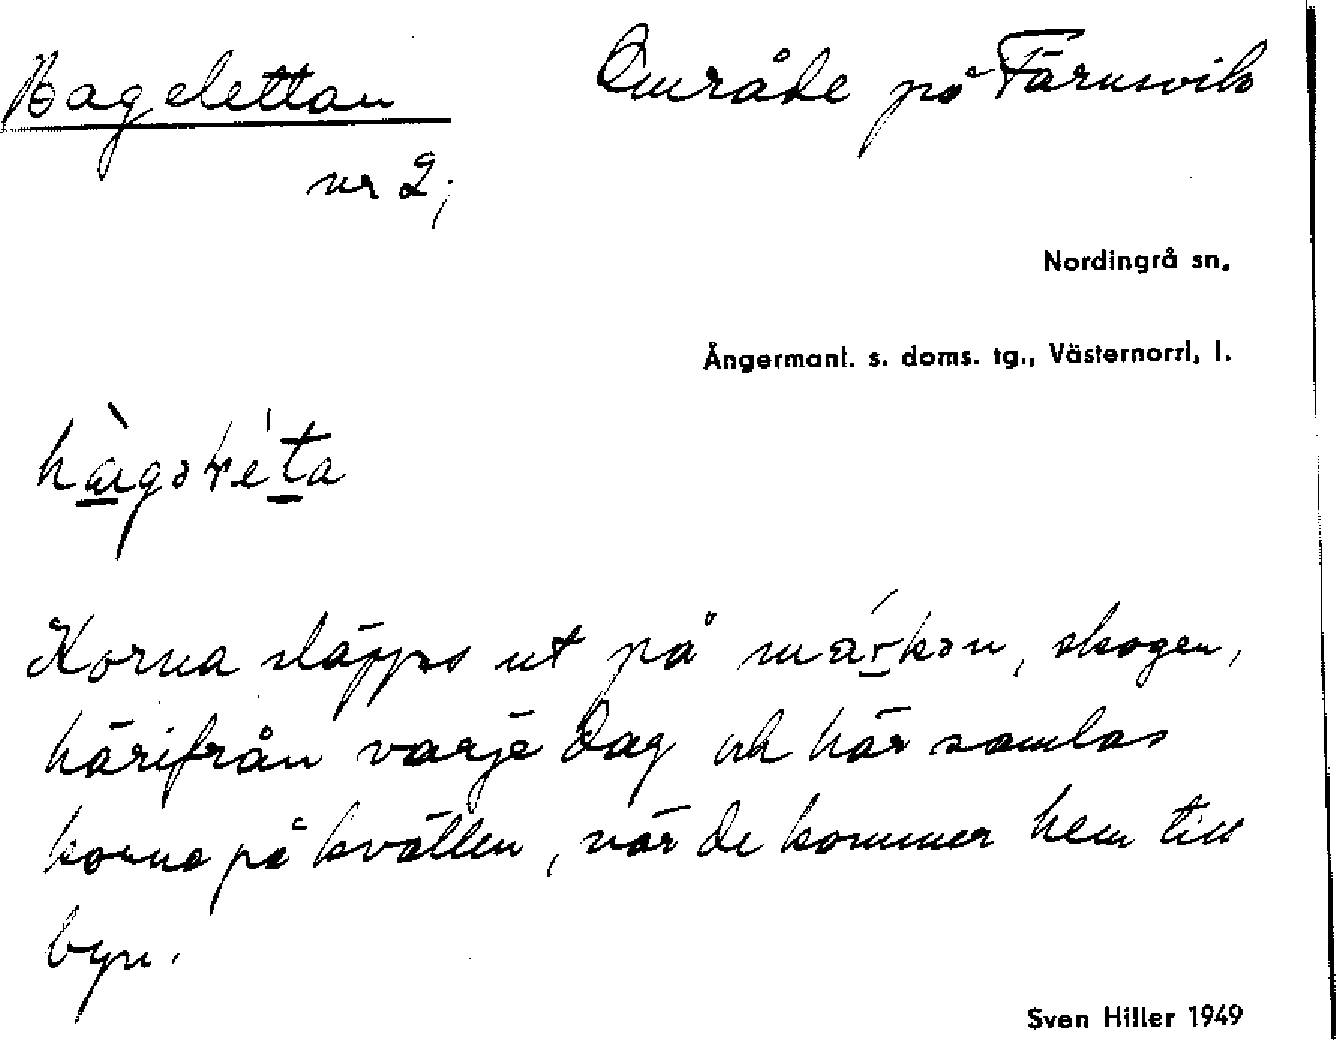 Hagslettan Område på Färnsvik
nr 2;
Nordingrå sn.
Ångermanl. s. doms. tg., Västernorrl. l.
Korna släpps ut på märkən, skogen,
härifrån varje dag och här samlas
korna på kvällen, när de kommer hem till
byn.
Sven Hiller 1949